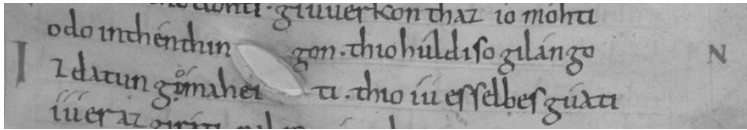 giuuerkon thaz io mohti
odo inthénthin gon · thio húldi so gilángo N
I z datun gomahei ti · thio iú es selbes gúati
íúer az